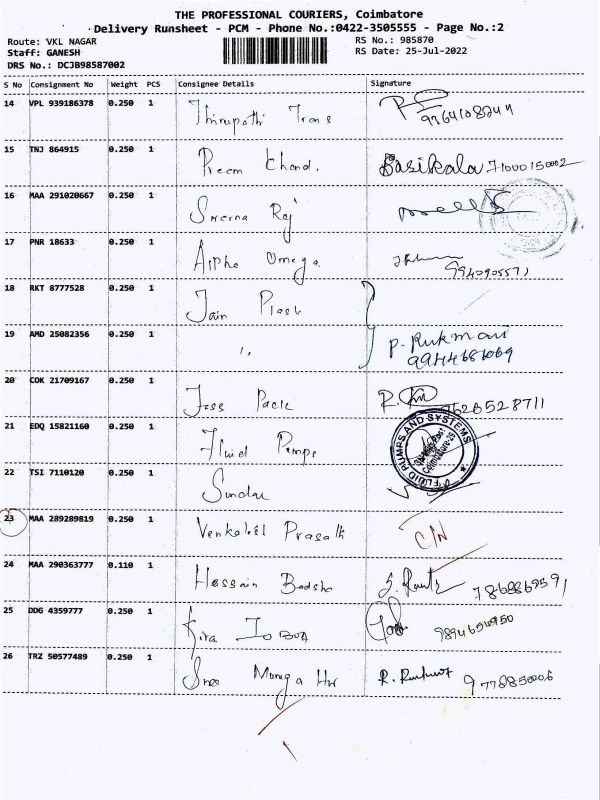 THE PROFESSIONAL COURIERS, Coimbatore
Delivery Runsheet - PCM - Phone No.:0422-3505555 - Page No.:2
Route: VKL NAGAR
RS No.: 985870
Staff: GANESH
RS Date: 25-Jul-2022
DRS No.: DCJB98587002
S No Consignment No Weight PCS Consignee Details Signature
14 VPL 939186378 0.250 1 Thirupathi Trans
15 TNJ 864915 0.250 1 Prem Chand. Sasikala 7100015002
16 MAA 291020667 0.250 1 Raj
17 PNR 18633 0.250 1 Alpha Omega 9940905571
18 RKT 8777528 0.250 1 Jain Plast
19 AMD 25082356 0.250 1 " P. Rukmani
9944681069
20 COK 21709167 0.250 1 Jess Pack 9626528711
21 EDQ 15821160 0.250 1 Fluid Pumps FLUID PUMPS AND SYSTEMS Coimbatore-25
22 TSI 7110120 0.250 1 Sundar
23 MAA 289289819 0.250 1 Venkatesh Prasath C/N
24 MAA 290363777 0.110 1 Hossain Badsha 7868869591
25 DDG 4359777 0.250 1 Kira
26 TRZ 50577489 0.250 1 Sree Muruga Hw